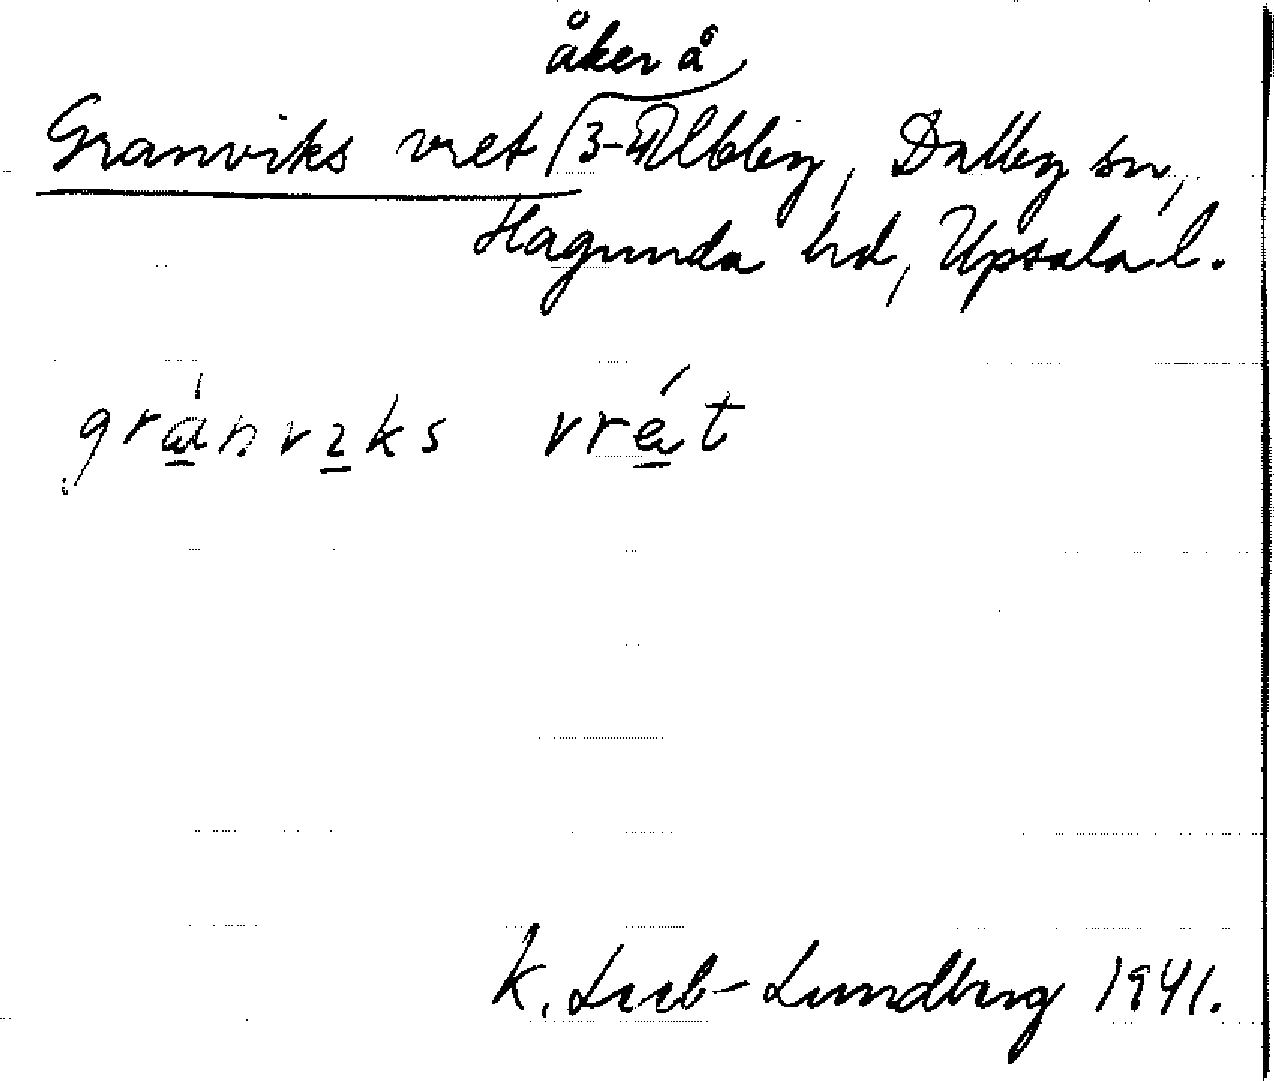 åker å
Granviks vret 3-4 Ubby, Dalby sn,
Hagunda hd, Upsala l.
gránvıks vrét
K. Leeb-Lundberg 1941.